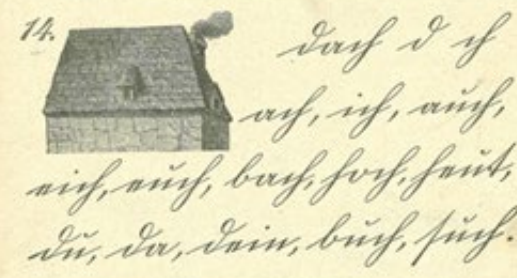 14. dach d ch
ach, ich, auch,
eich, euch, bach, hoch, heut,
du, da, dein, buch, such.